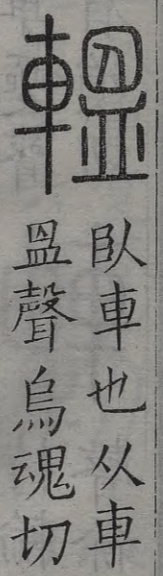 轀
臥車也从車
𥁕聲烏魂切